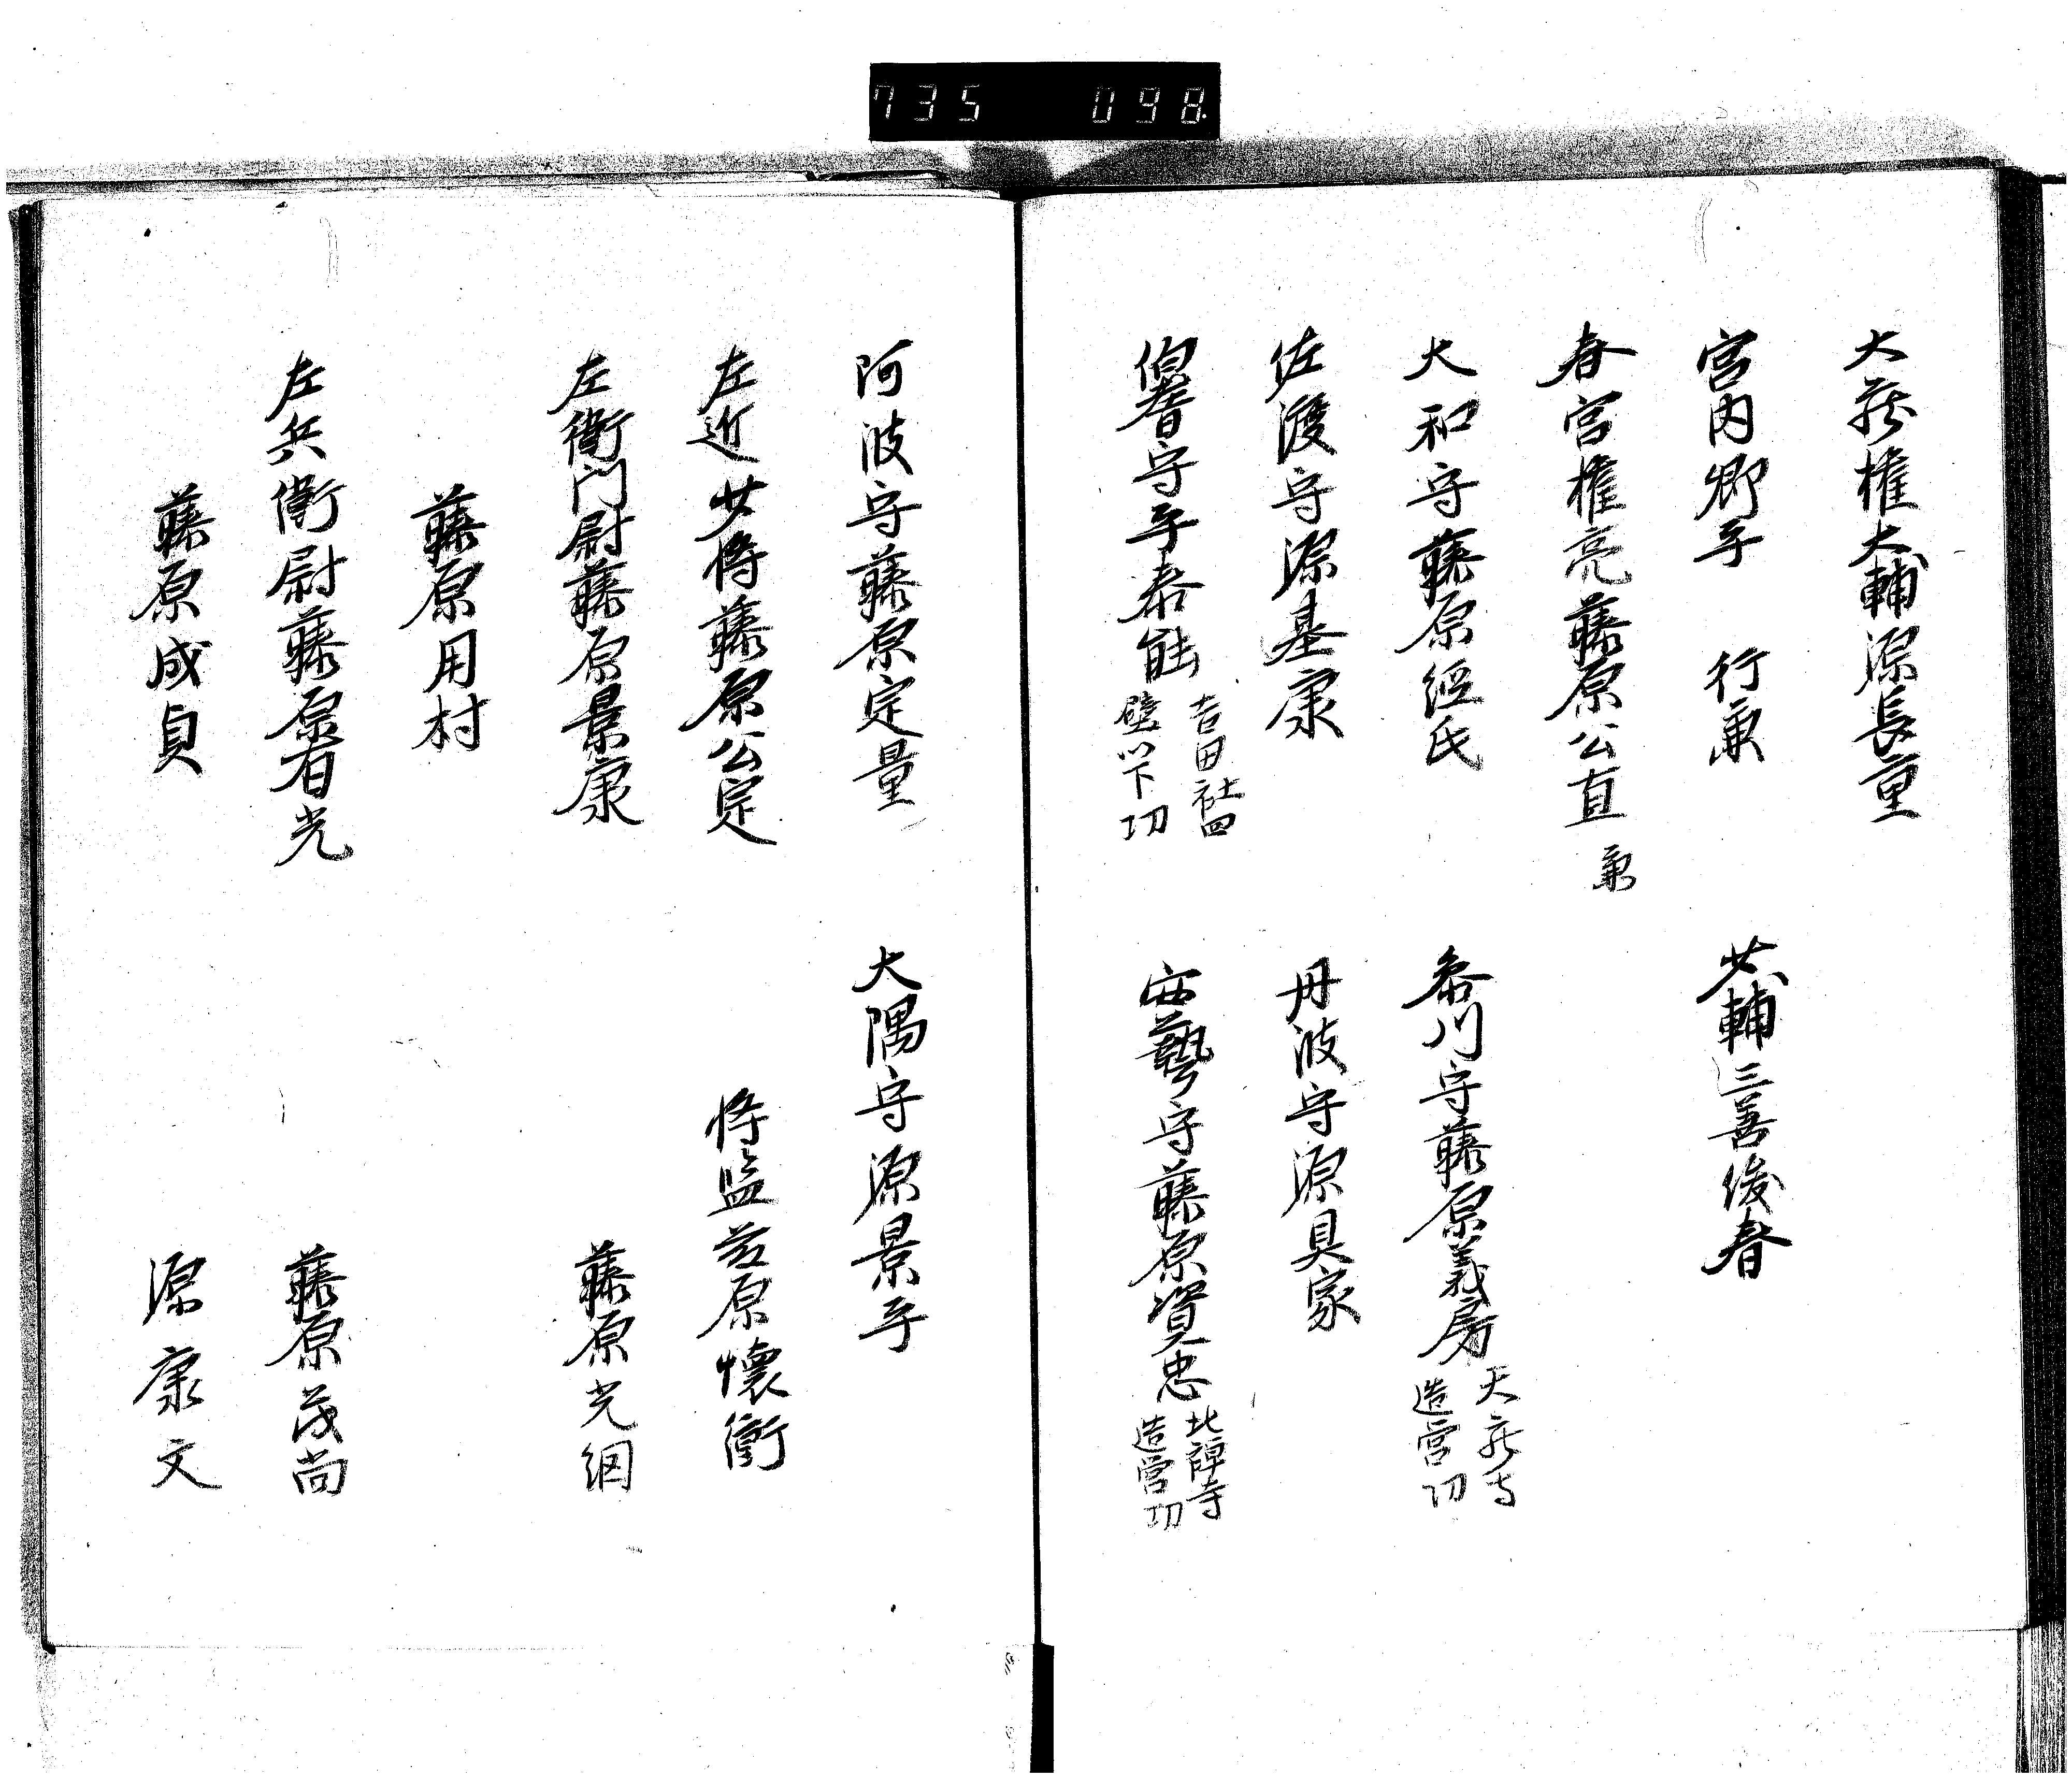 735 098
大蔵権大輔源長重
宮内卿平 行兼 少輔三善俊春
春宮権亮藤原公直 兼
大和守藤原経氏 参川守藤原義房 天龍寺造営功
佐渡守源基康 丹波守源具家
伯耆守平泰能 吉田社四壁以下功 安藝守藤原資忠 北禅寺造営功
阿波守藤原定量 大隅守源景平
左近少将藤原公定 将監藤原懐衡
左衛門尉藤原景康 藤原光綱
藤原用村
左兵衛尉藤原有光 藤原茂尚
藤原成貞 源康文